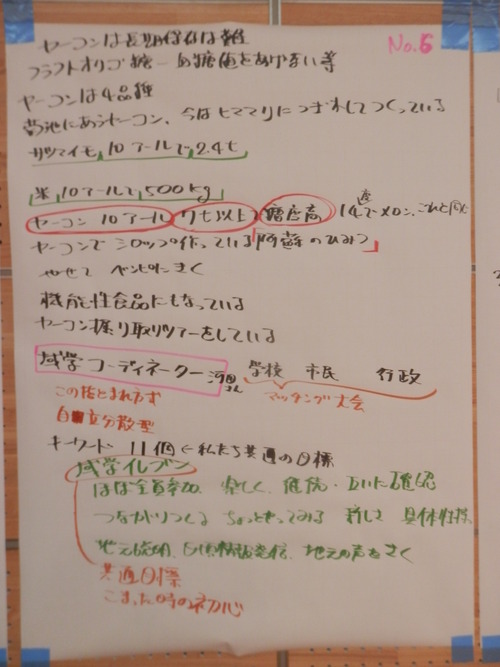 ヤーコンは長期保存は難
No.6
フラクトオリゴ糖ー血糖値をあげない等
ヤーコンは4品種
菊池にあうヤーコン、今はヒママリにつぎたしてつくっている
サツマイモ、10アールで2.4t
米10アールで500kg
ヤーコン10アール 7t以上 糖度高 14度でメロン、ごれと同じ
ヤーコンでシロップ作っている「阿蘇のひみつ」
やせて ベンピにきく
機能性食品にもなっている
ヤーコン掘り取りツアーをしている
域学コーディネーター 河田さん 学校 市民 行政
この指とまれ方式 マッチング大会
自立分散型
キーワード 11個←私たち共通の目標
域学イレブン
ほぼ全員参加 楽しく 継続・互いに確認
つながりつくる ちょっとやってみる 新しさ 具体性
地元説明 目標情報発信 地元の声をきく
共通目標
こまった時の初心